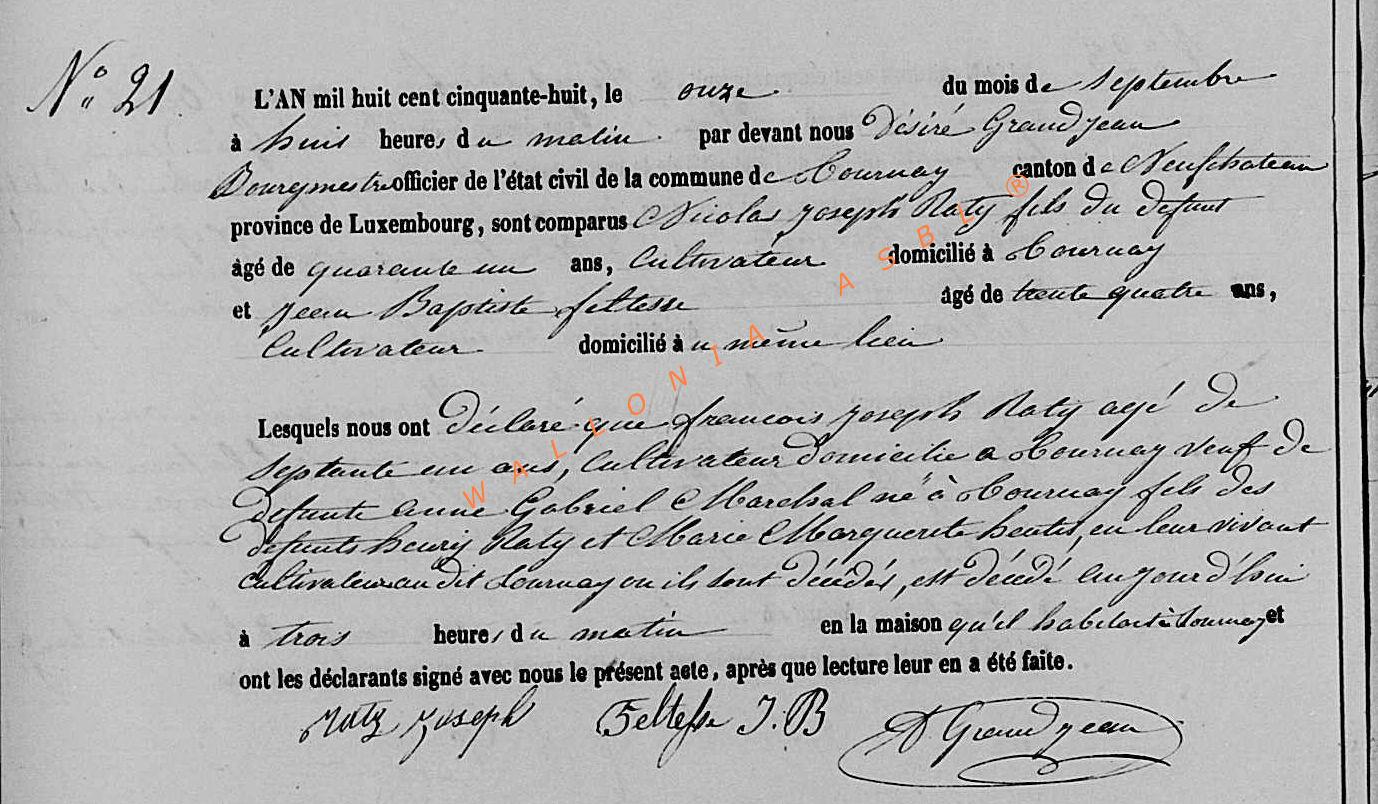 N° 21
L'AN mil huit cent cinquante-huit, le onze du mois de Septembre
à huit heures du matin par devant nous Désiré Grandjean
Bourgmestre officier de l'état civil de la commune de Tournay canton de Neufchateau
province de Luxembourg, sont comparus Nicolas Joseph Raty fils du defunt
âgé de quarante un ans, Cultivateur domicilié à Tournay
et Jean Baptiste feltesse âgé de trente quatre ans,
Cultivateur domicilié à u même lieu
Lesquels nous ont Déclaré que francois Joseph Raty agé de
septante un ans, Cultivateur domicilié a Tournay veuf de
defunte Anne Gabriel Marechal né à Tournay fils des
defunts henry Raty et Marie Marguerite en leur vivant
cultivateur au dit Tournay ou ils sont décédés, est décédé aujourd'hui
à trois heures du matin en la maison qu'il habitait à Tournay et
ont les déclarants signé avec nous le présent acte, après que lecture leur en a été faite.
Raty Joseph Feltesse J. B D Grandjean
WALLONIA ASBL ®